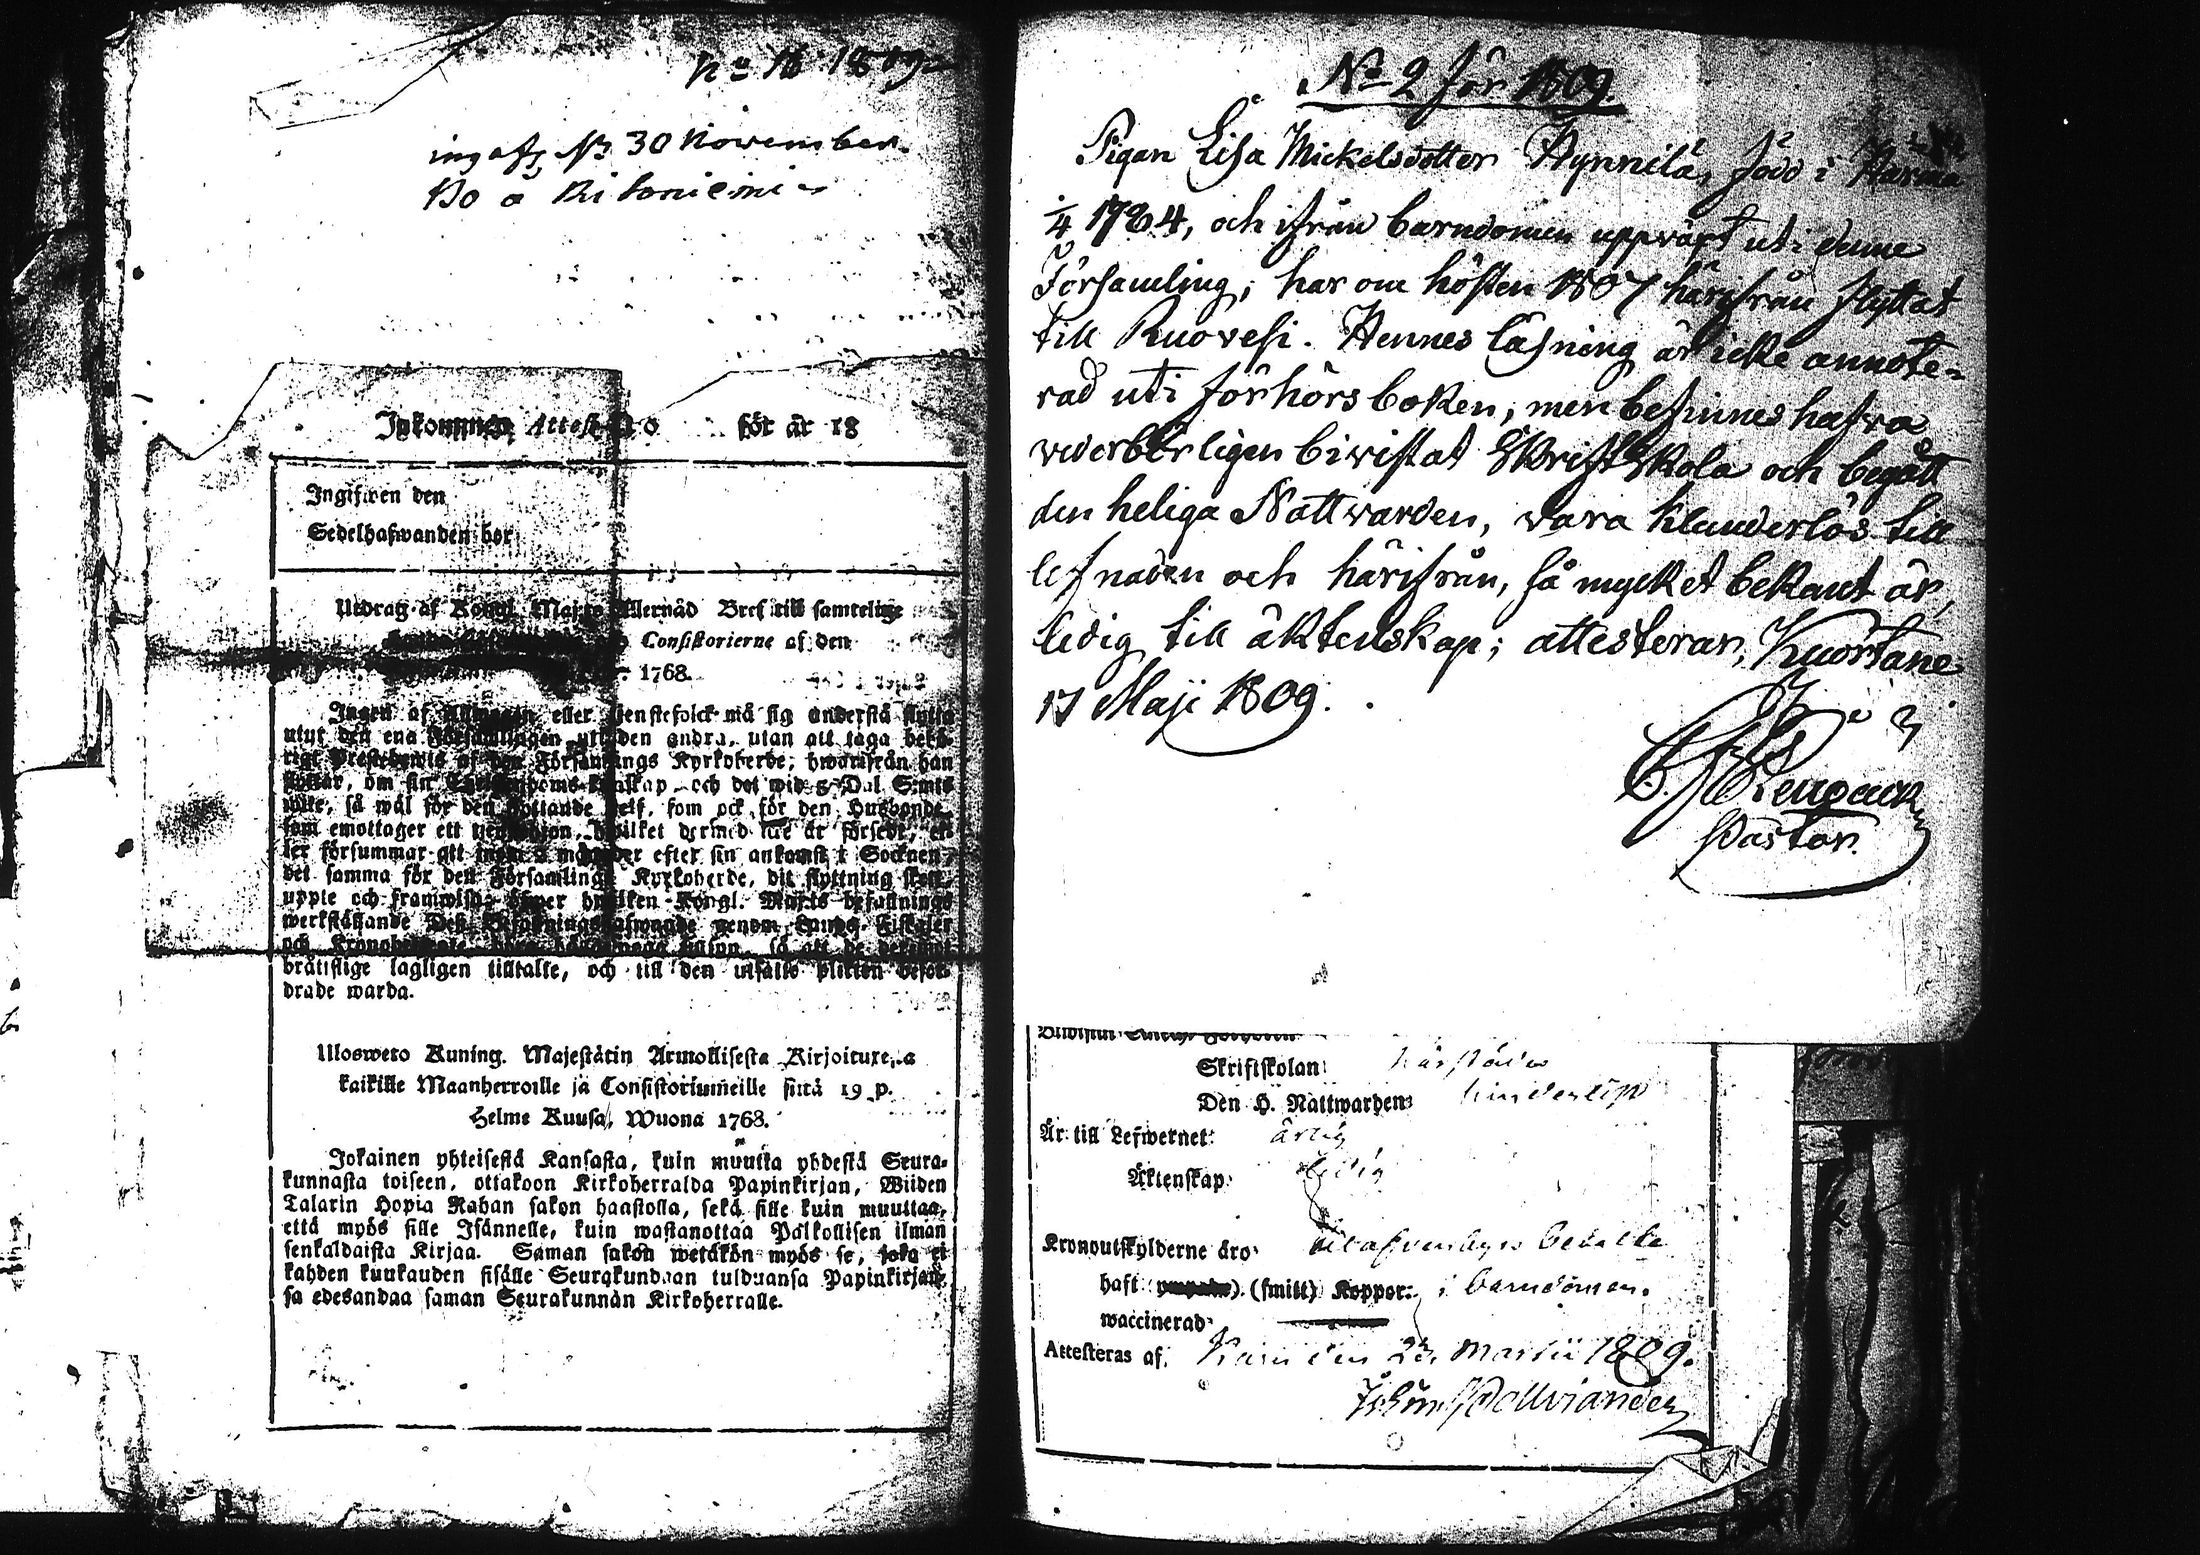 No 16 1809
30 November
Bo å Ritoniemi
Inkommen Attest No för år 18
Ingifwen den
Sedelhafwanden bor
Utdrag af Kongl. Maj:ts Allernåd Bref till samtelige
Consistorierne af den
1768.
Ingen af Allmogen eller tjenstefolck må sig understå flytta
utur den ena Församlingen uti den andra, utan att taga behö-
rigt Prestebewis af den Församlings Kyrkoherde, hwarifrån han
flyttar, om sin Christendoms-kunskap och det wid 5 Dal. S:mts
wite, så wäl för den flyttande self, som ock för den Husbonde
som emottager ett tjenstehjon, hwilket dermed icke är försedt, el-
ler försummar att inom 2 månader efter sin ankomst i Socknen,
det samma för den Församlings Kyrkoherde, dit flyttning skett,
uppte och framwisa; öfwer hwilken Kongl. Maj:ts befallnings
werkställande Dess Befallningshafwande genom Lands-Fiskaler
och Kronobetjente så att de
brättslige lagligen tilltalte, och till den utsatte plikten befor-
drade warda.
Ulosweto Kuning. Majestätin Armollisesta Kirjoituxesta
kaikille Maanherroille ja Consistoriumeille siitä 19 p.
Helme Kuusa, Wuona 1768.
Jokainen yhteisestä Kansasta, kuin muutta yhdestä Seura-
kunnasta toiseen, ottakoon Kirkoherralda Papinkirjan, Wiiden
Talarin Hopia Rahan sakon haastolla, sekä sille kuin muuttaa,
että myös sille Isännelle, kuin wastanottaa Palkollisen ilman
senkaldaista Kirjaa. Saman sakon wetäkön myös se, joka ei
kahden kuukauden sisälle Seurakundaan tulduansa Papinkirjaan-
sa edesandaa saman Seurakunnan Kirkoherralle.
No 2 för 1809.
Pigan Lisa Mickelsdotter Hynnilä, född i Härmä
1/4 1784, och ifrån barndomen uppväxt uti denne
Församling, har om hösten 1807 härifrån flyttat
till Ruovesi. Hennes läsning är icke annote-
rad uti förhörsboken; men befinnes hafva
vederbörligen bivistat Skriftskola och begått
den heliga Nattvarden, vara klanderlös till
lefnaden och härifrån, så mycket bekant är,
ledig till äktenskap; attesterar, Kuortane
17 Maji 1809.
Pastor.
Skriftskolan:
Den H. Nattwarden: hinderlöst
Är till Lefwernet: ärlig
Äktenskap: ledig
Kronoutskylderne äro: betalte
haft (smitt) Koppor: i barndomen.
waccinerad:
Attesteras af. den 23. Martii 1809.